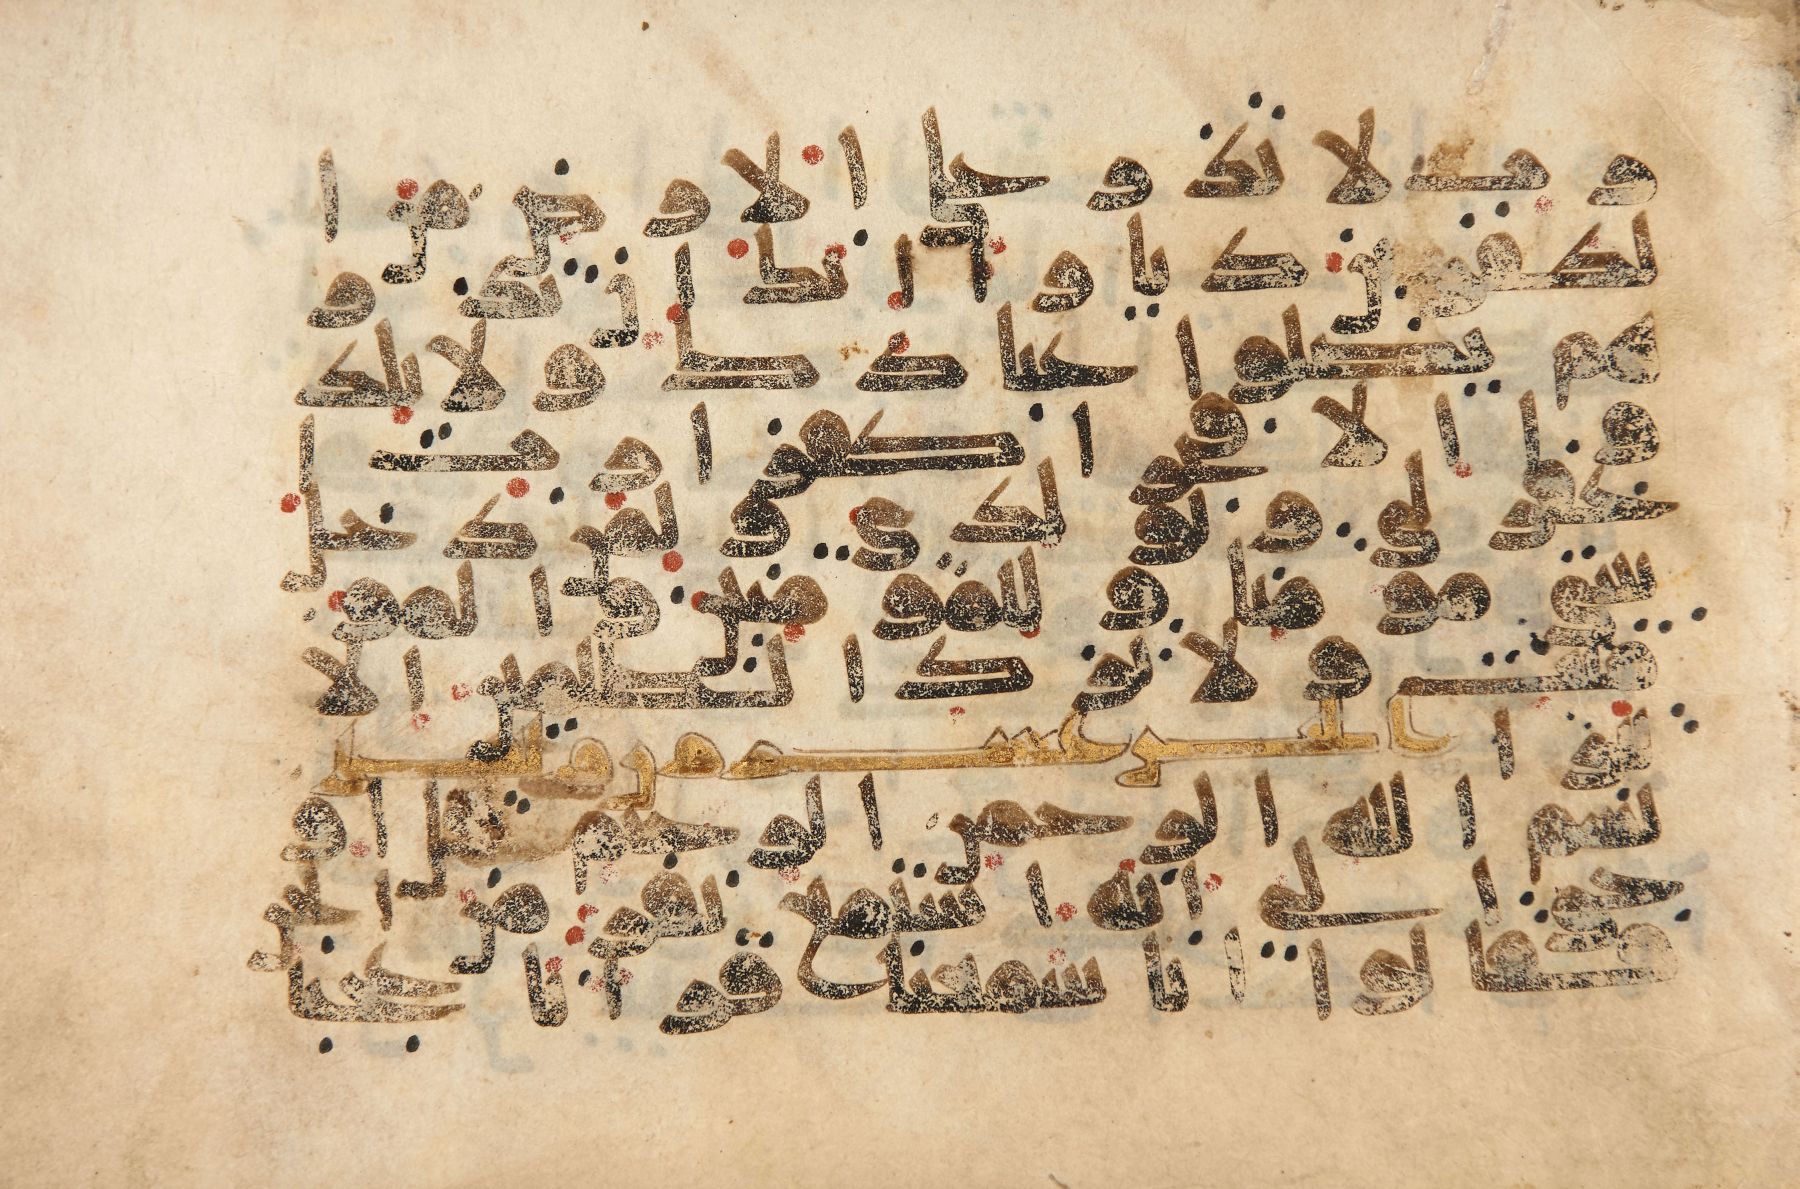 رب لا تذر على الارض من ا
لكفرين ديارا انك ان تذر
هم يضلوا عبادك ولا يلد
وا الا فاجرا كفارا رب ا
غفر لي ولولدي ولمن دخل
بيتي مومنا وللمومنين والمو
منت ولا تزد الظلمين الا
تبارا
بسم الله الرحمن الرحيم قل او
حي الي انه استمع نفر من الجن
فقالوا انا سمعنا قرانا عجبا